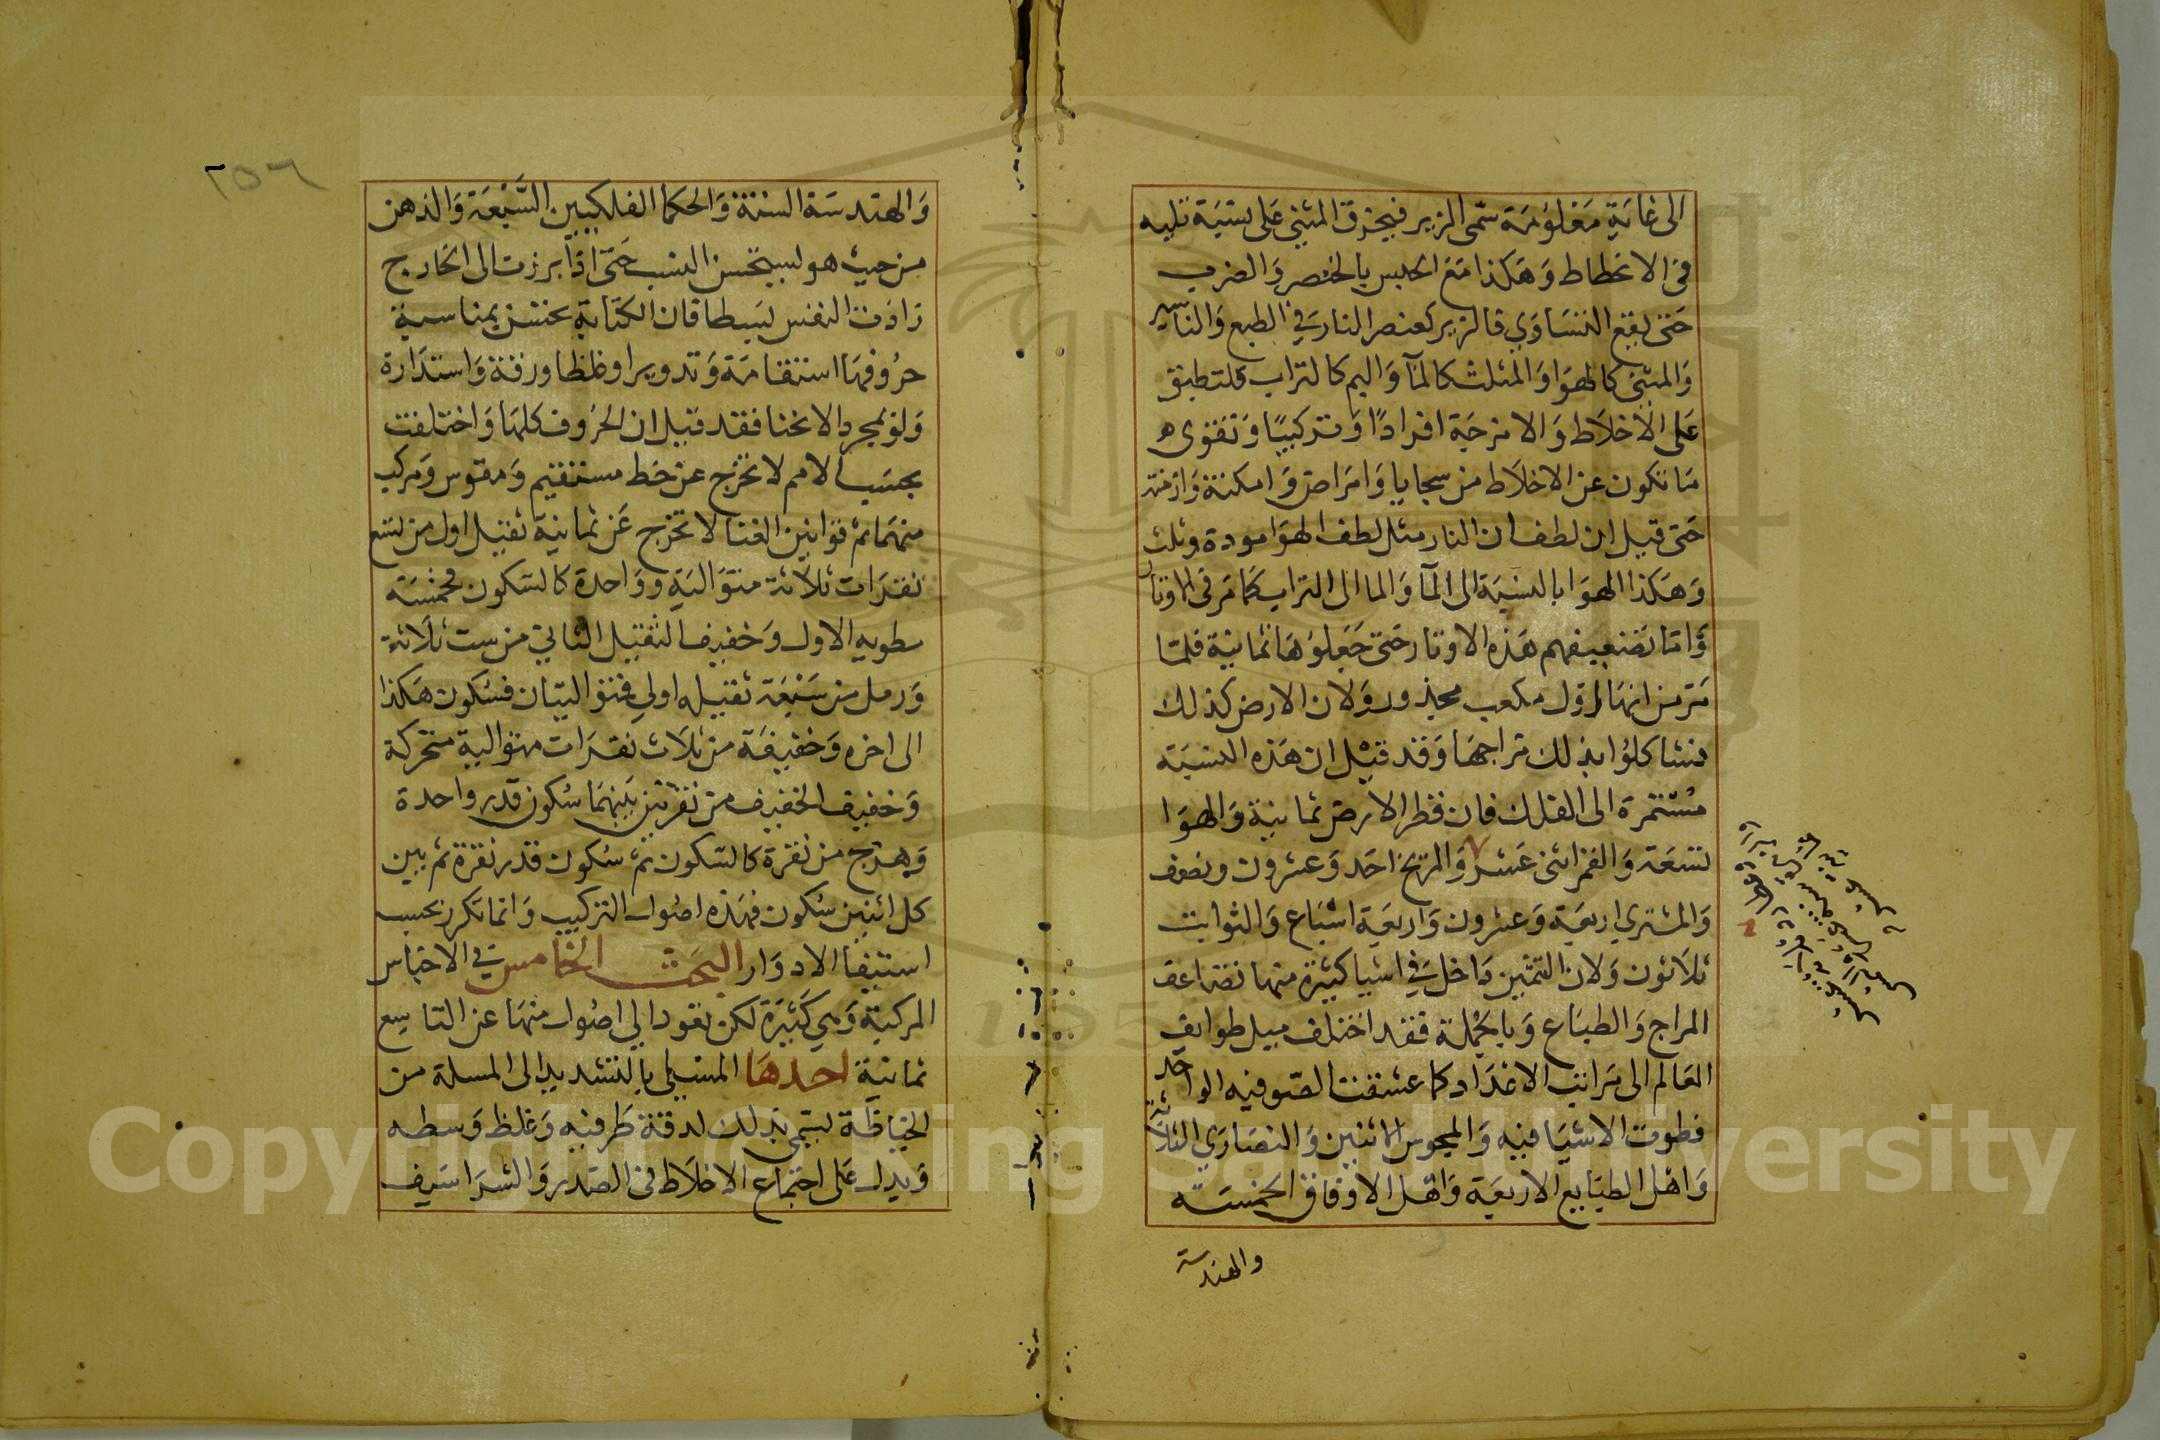 الى غاية معلومة سمى الزير فيحزق المثنى على ستية تليه
فى الانحطاط وهكذا مع الحبس بالخنصر والضرب
حتى يقع التساوي فالزير كعنصر النار في الطبع والتاثير
والمثنى كالهوا والمثلث كالمآ واليم كالتراب فلتطبق
على الاخلاط والامزجة افرادًا وتركيبًا وتقوى
ما تكون عن الاخلاط من سجايا وامراض وامكنة وازمنة
حتى قيل ان لطف ان النار مثل لطف الهوا مودة وثلث
وهكذا الهوا بالنسبة الى المآ والما الى التراب كما مر فى الاوتار
واما تضعيفهم هذه الاوتار حتى جعلوها ثمانية فلما
مر من انها اول مكعب مجذور ولان الارض كذلك
فشاكلوا بذلك مزاجها وقد قيل ان هذه النسبة
مستمرة الى الفلك فان قطر الارض ثمانية والهوا
تسعة والقمر اثنى عشر والمريخ احد وعشرون ونصف
والمشتري اربعة وعشرون واربعة اسباع والثوابت
ثلاثون ولان التثمين داخل في اشيا كثيرة منها تضاعف
المزاج والطباع وبالجملة فقد اختلف ميل طوايف
العالم الى مراتب الاعداد كما عشقت الصوفيه الواحد
فطوت الاشيا فيه والمجوس الاثنين والنصارى الثلاثة
واهل الطبايع الاربعة واهل الاوفاق الخمسة
والهندسة
٢٥٦
والهندسة الستة والحكما الفلكيين السبعة والذهن
من حيث هو يستحسن النسب حتى اذا برزت الى الخارج
زادت النفس بسطا فان الكتابة تحسن بمناسبة
حروفها استقامة وتدويرا وغلظا ورقة واستدارة
ولو بمجرد الانحنا فقد قيل ان الحروف كلها واختلفت
بحسب الامم لا تخرج عن خط مستقيم ومقوس ومركب
منهما ثم قوانين الغنا لا تخرج عن ثمانية ثقيل اول من تسع
نقرات ثلاثة متوالية وواحدة كالسكون فخمسة
مطويه الاول وخفيف الثقيل الثاني من ست ثلاثة
ورمل من سبعة ثقيله اولى فمتواليتان فسكون هكذا
الى اخره وخفيفة من ثلاث نقرات متوالية متحركة
وخفيف الخفيف من نقرتين بينهما سكون قدر واحدة
وهزج من نقرة كالسكون ثم سكون قدر نقرة ثم بين
كل اثنين سكون فهذه اصول التركيب وانما تكرر بحسب
استيفا الادوار البحث الخامس في الاجناس
المركبة وهي كثيرة لكن تعود الى اصول منها عن التاسع
ثمانية احدها المسلى بالتشديد الى المسلة من
الخياطة يسمى بذلك لدقة طرفيه وغلظ وسطه
ويدل على اجتماع الاخلاط فى الصدر والشراسيف